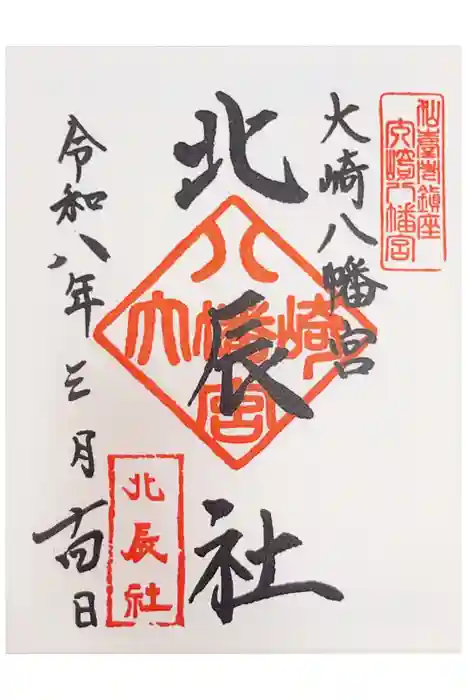 大崎八幡宮
北辰社
令和八年三月十四日
大崎八幡宮
八
大幡崎
宮
北辰社